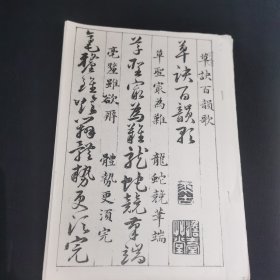 草訣百韻歌
草訣百韻歌
草聖最為難 龍蛇競筆端
草聖最為難龍蛇競筆端
毫釐雖欲辨 體勢更須完
毫釐雖欲辨體勢更須完